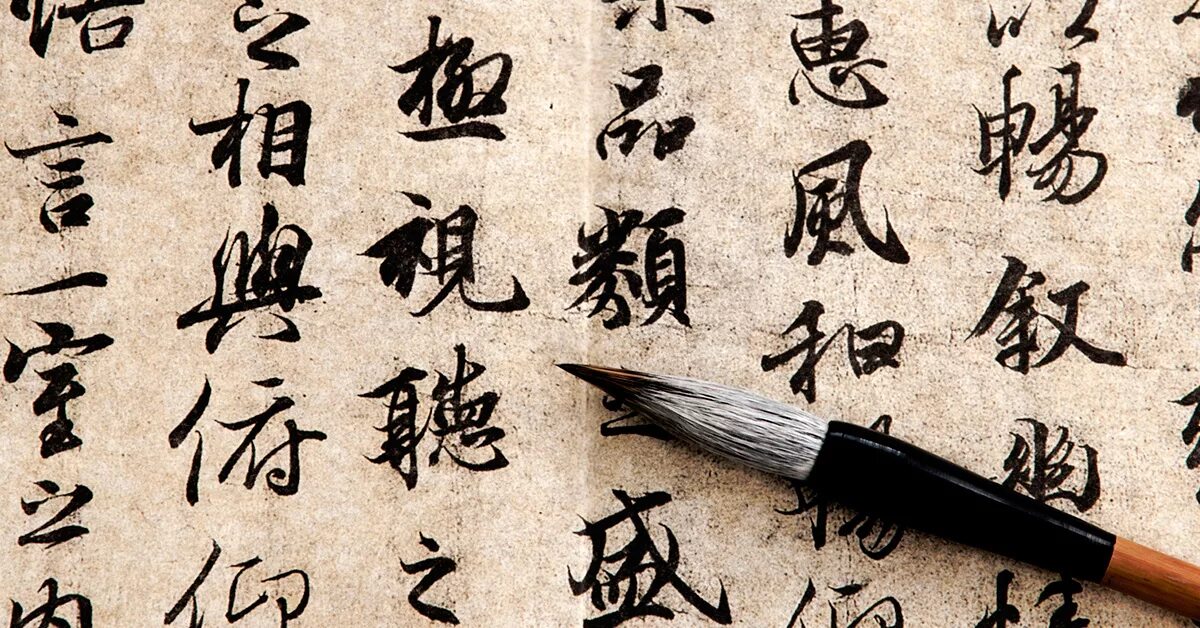 以暢叙幽情
惠風和暢仰
察品類之盛
極視聽之
之相與俯仰
悟言一室之內